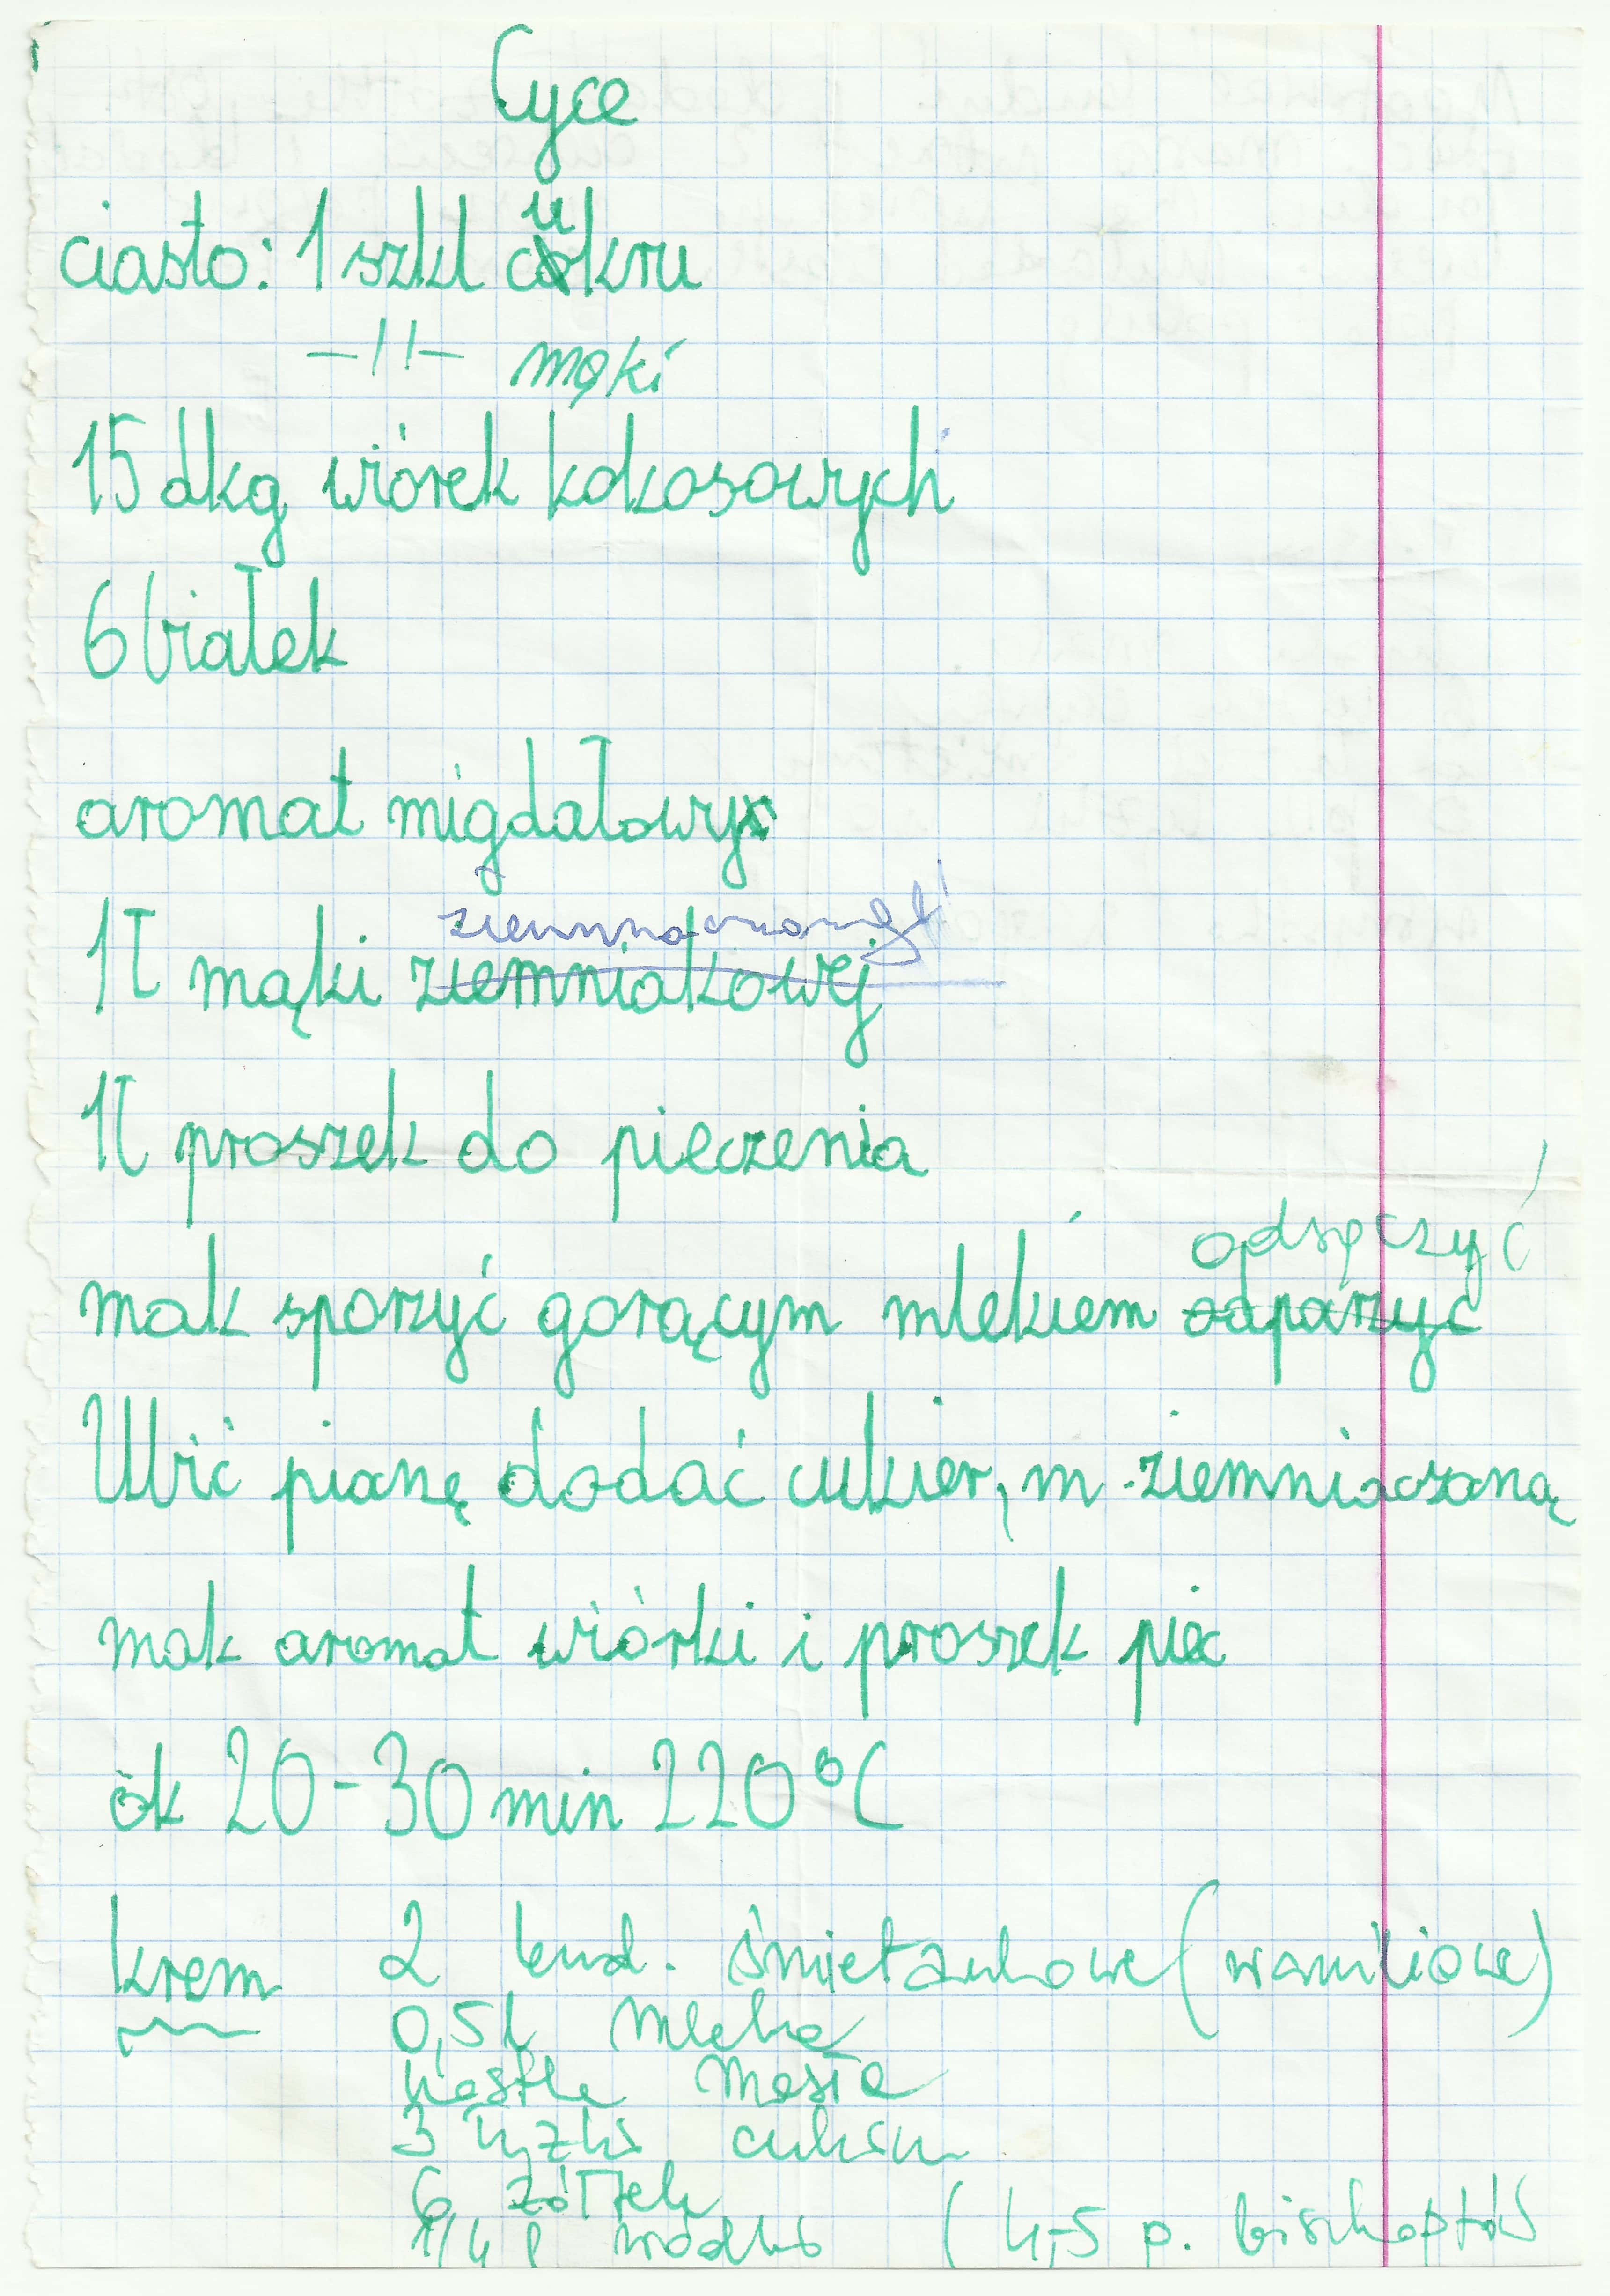 Cyce
ciasto: 1 szkl cukru
—11— mąki
15 dkg wiórek kokosowych
6 białek
aromat migdałowy
ziemniaczanej
1Ł mąki ziemniakowej
1Ł proszek do pieczenia
odsączyć
mak sparzyć gorącym mlekiem odparzyć
Ubić pianę dodać cukier, m. ziemniaczaną
mak aromat wiórki i proszek piec
ok 20-30 min 220°C
krem 2 bud. śmietankowe (waniliowe)
0,5 l mleka
kostka masła
3 łyżki cukru
6 żółtek
1/4 l wódki (4,5 p. biszkoptów